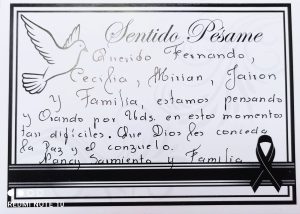 Sentido Pésame
Querido Fernando,
Cecilia, Mirian, Jairon
Y Familia, estamos pensando
y Orando por Uds. en estos momentos
tan difíciles. Que Dios les conceda
la Paz y el conzuelo.
Nancy Sarmiento y Familia
REDMI NOTE 10